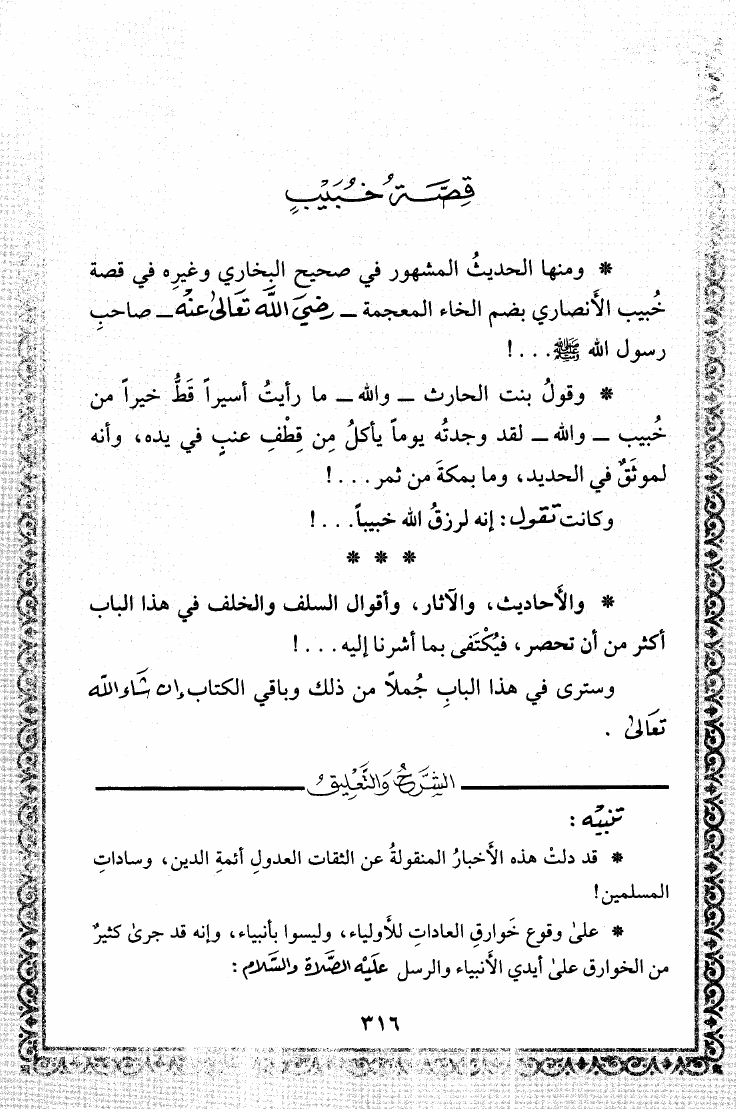 قِصَّةُ خُبَيْبٍ
* ومنها الحديثُ المشهور في صحيح البخاري وغيرِه في قصة
خُبيب الأنصاري بضم الخاء المعجمة ـ رضيَ اللَّه تعَالىٰ عنْه ـ صاحبِ
رسول الله ﷺ...!
* وقولُ بنت الحارث ـ والله ـ ما رأيتُ أسيراً قَطُّ خيراً من
خُبيب ـ والله ـ لقد وجدتُه يوماً يأكلُ مِن قِطْفِ عنبٍ في يده، وأنه
لموثَقٌ في الحديد، وما بمكةَ من ثمر...!
وكانت تقول: إنه لرزقُ الله خبيباً...!
* * *
* والأحاديث، والآثار، وأقوال السلف والخلف في هذا الباب
أكثر من أن تحصر، فيُكْتفى بما أشرنا إليه...!
وسترى في هذا البابِ جُملاً من ذلك وباقي الكتاب إن شَاء اللَّه
تعَالىٰ .
الشَّرحُ وَالتَّعْليقُ
تنبيْه:
* قد دلتْ هذه الأخبارُ المنقولةُ عن الثقات العدولِ أئمةِ الدين، وساداتِ
المسلمين!
* علىٰ وقوع خَوارقِ العاداتِ للأولياء، وليسوا بأنبياء، وإنه قد جرىٰ كثيرٌ
من الخوارق علىٰ أيدي الأنبياء والرسل عليْه الصَّلاة والسَّلام:
٣١٦